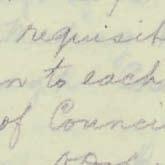 requisi
n to each
of Counc